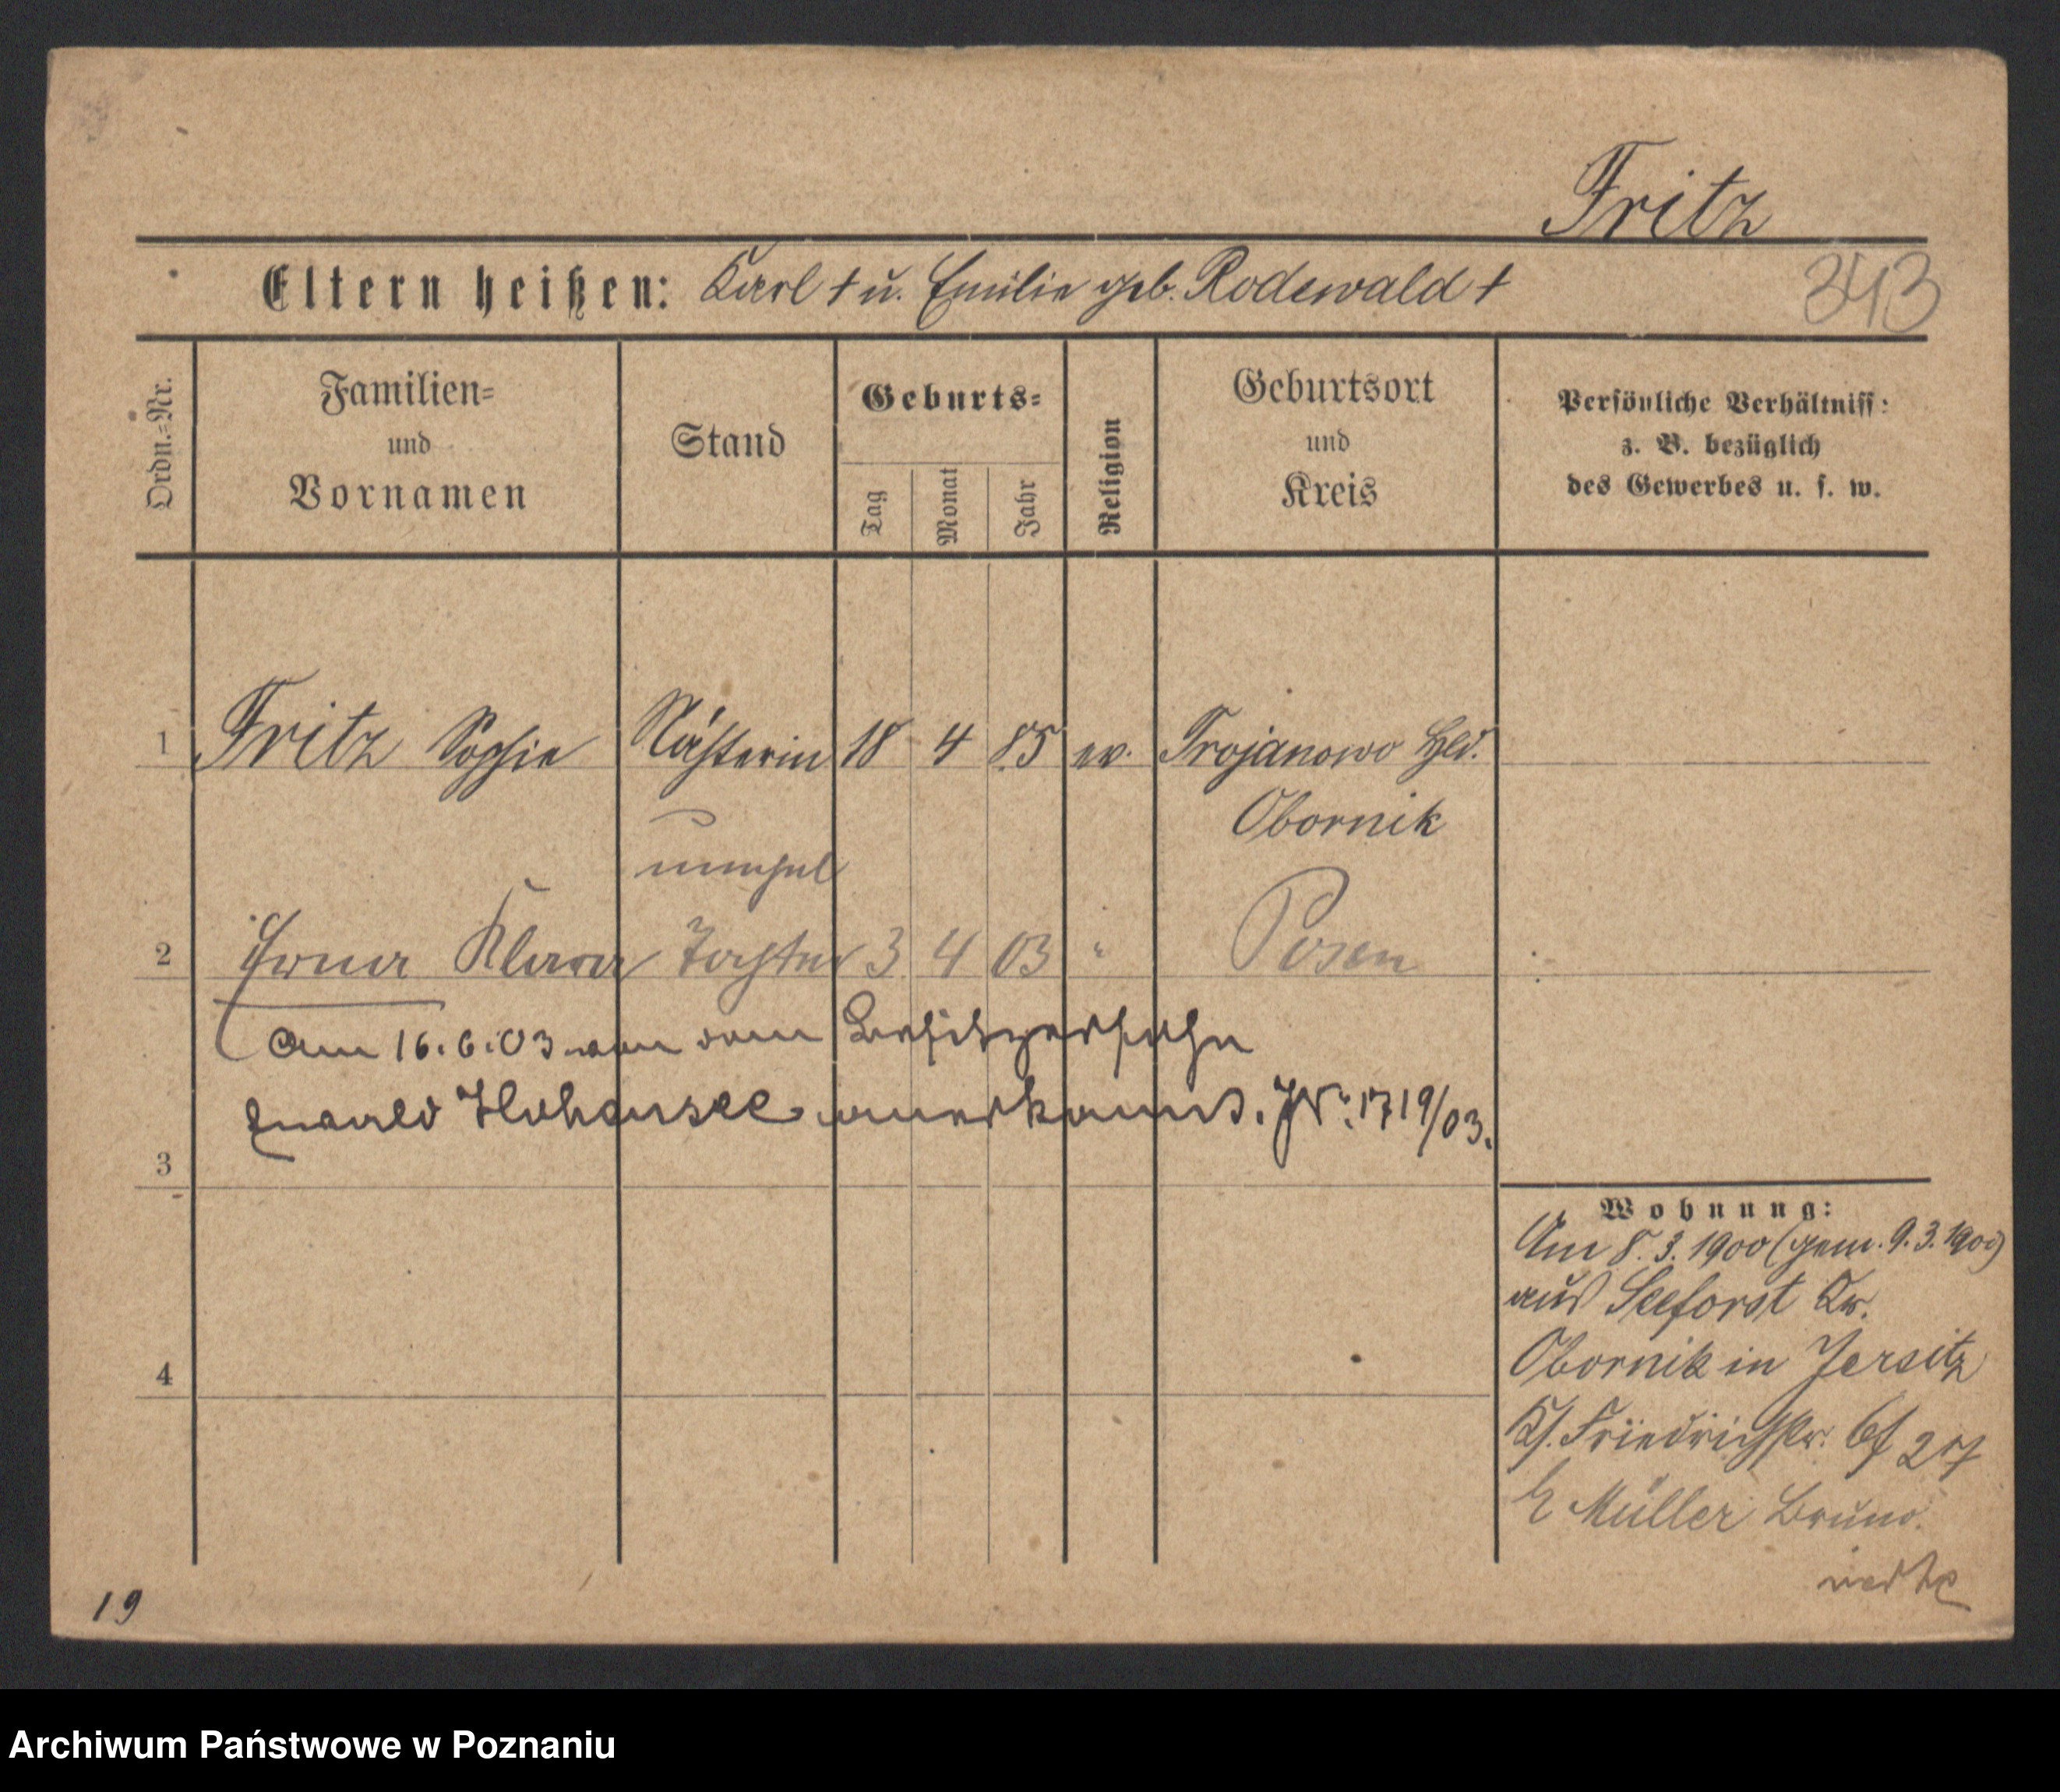 Fritz
Eltern heißen: Karl † u. Emilie geb. Rodewald †
343
Ordn.=Nr.
Familien= und Vornamen
Stand
Geburts=
Tag
Monat
Jahr
Religion
Geburtsort und Kreis
Persönliche Verhältniss:
z. B. bezüglich
des Gewerbes u. s. w.
1 Fritz Sophie Nähterin 18 4 85 ev. Trojanowo Hld.
Obornik
unehel
2 Erna Klara Tochter 3 4 03 " Posen
Am 16.6.03 von dem Besitzersohn
Ewald Hohensee anerkannt. JN: 1719/03.
3
4
Wohnung:
Am 8.3.1900 (gem. 9.3.1900)
aus Seeforst Kr.
Obornik in Jersitz
Ks. Friedrichstr. 27
Müller Bruno.
19
Archiwum Państwowe w Poznaniu